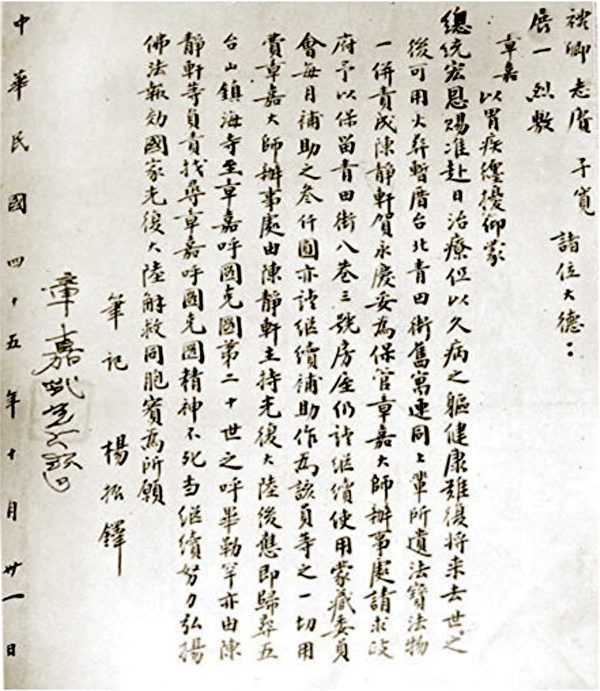 禮卿 志賡 子寬
展一 烈敷
諸位大德：
章嘉以胃疾纏擾仰蒙
總統宏恩賜准赴日治療但以久病之軀健康難復將来去世之
後可用火葬暫厝台北青田街舊寓連同上輩所遺法寶法物
一併責成陳靜軒賀永慶妥為保管章嘉大師辦事處請求政
府予以保留青田街八巷三號房屋仍請继續使用蒙藏委員
會每月補助之叁仟圓亦請继續補助作為該員等之一切用
費章嘉大師辦事處由陳靜軒主持光復大陸後應即歸葬五
台山鎮海寺至章嘉呼圖克圖第二十世之呼畢勒罕亦由陳
靜軒等負責找尋章嘉呼圖克圖精神不死当继續努力弘揚
佛法報効國家光復大陸解救同胞實為所願
筆記 楊振鐸
章嘉
中華民國四十五年十月卅一日